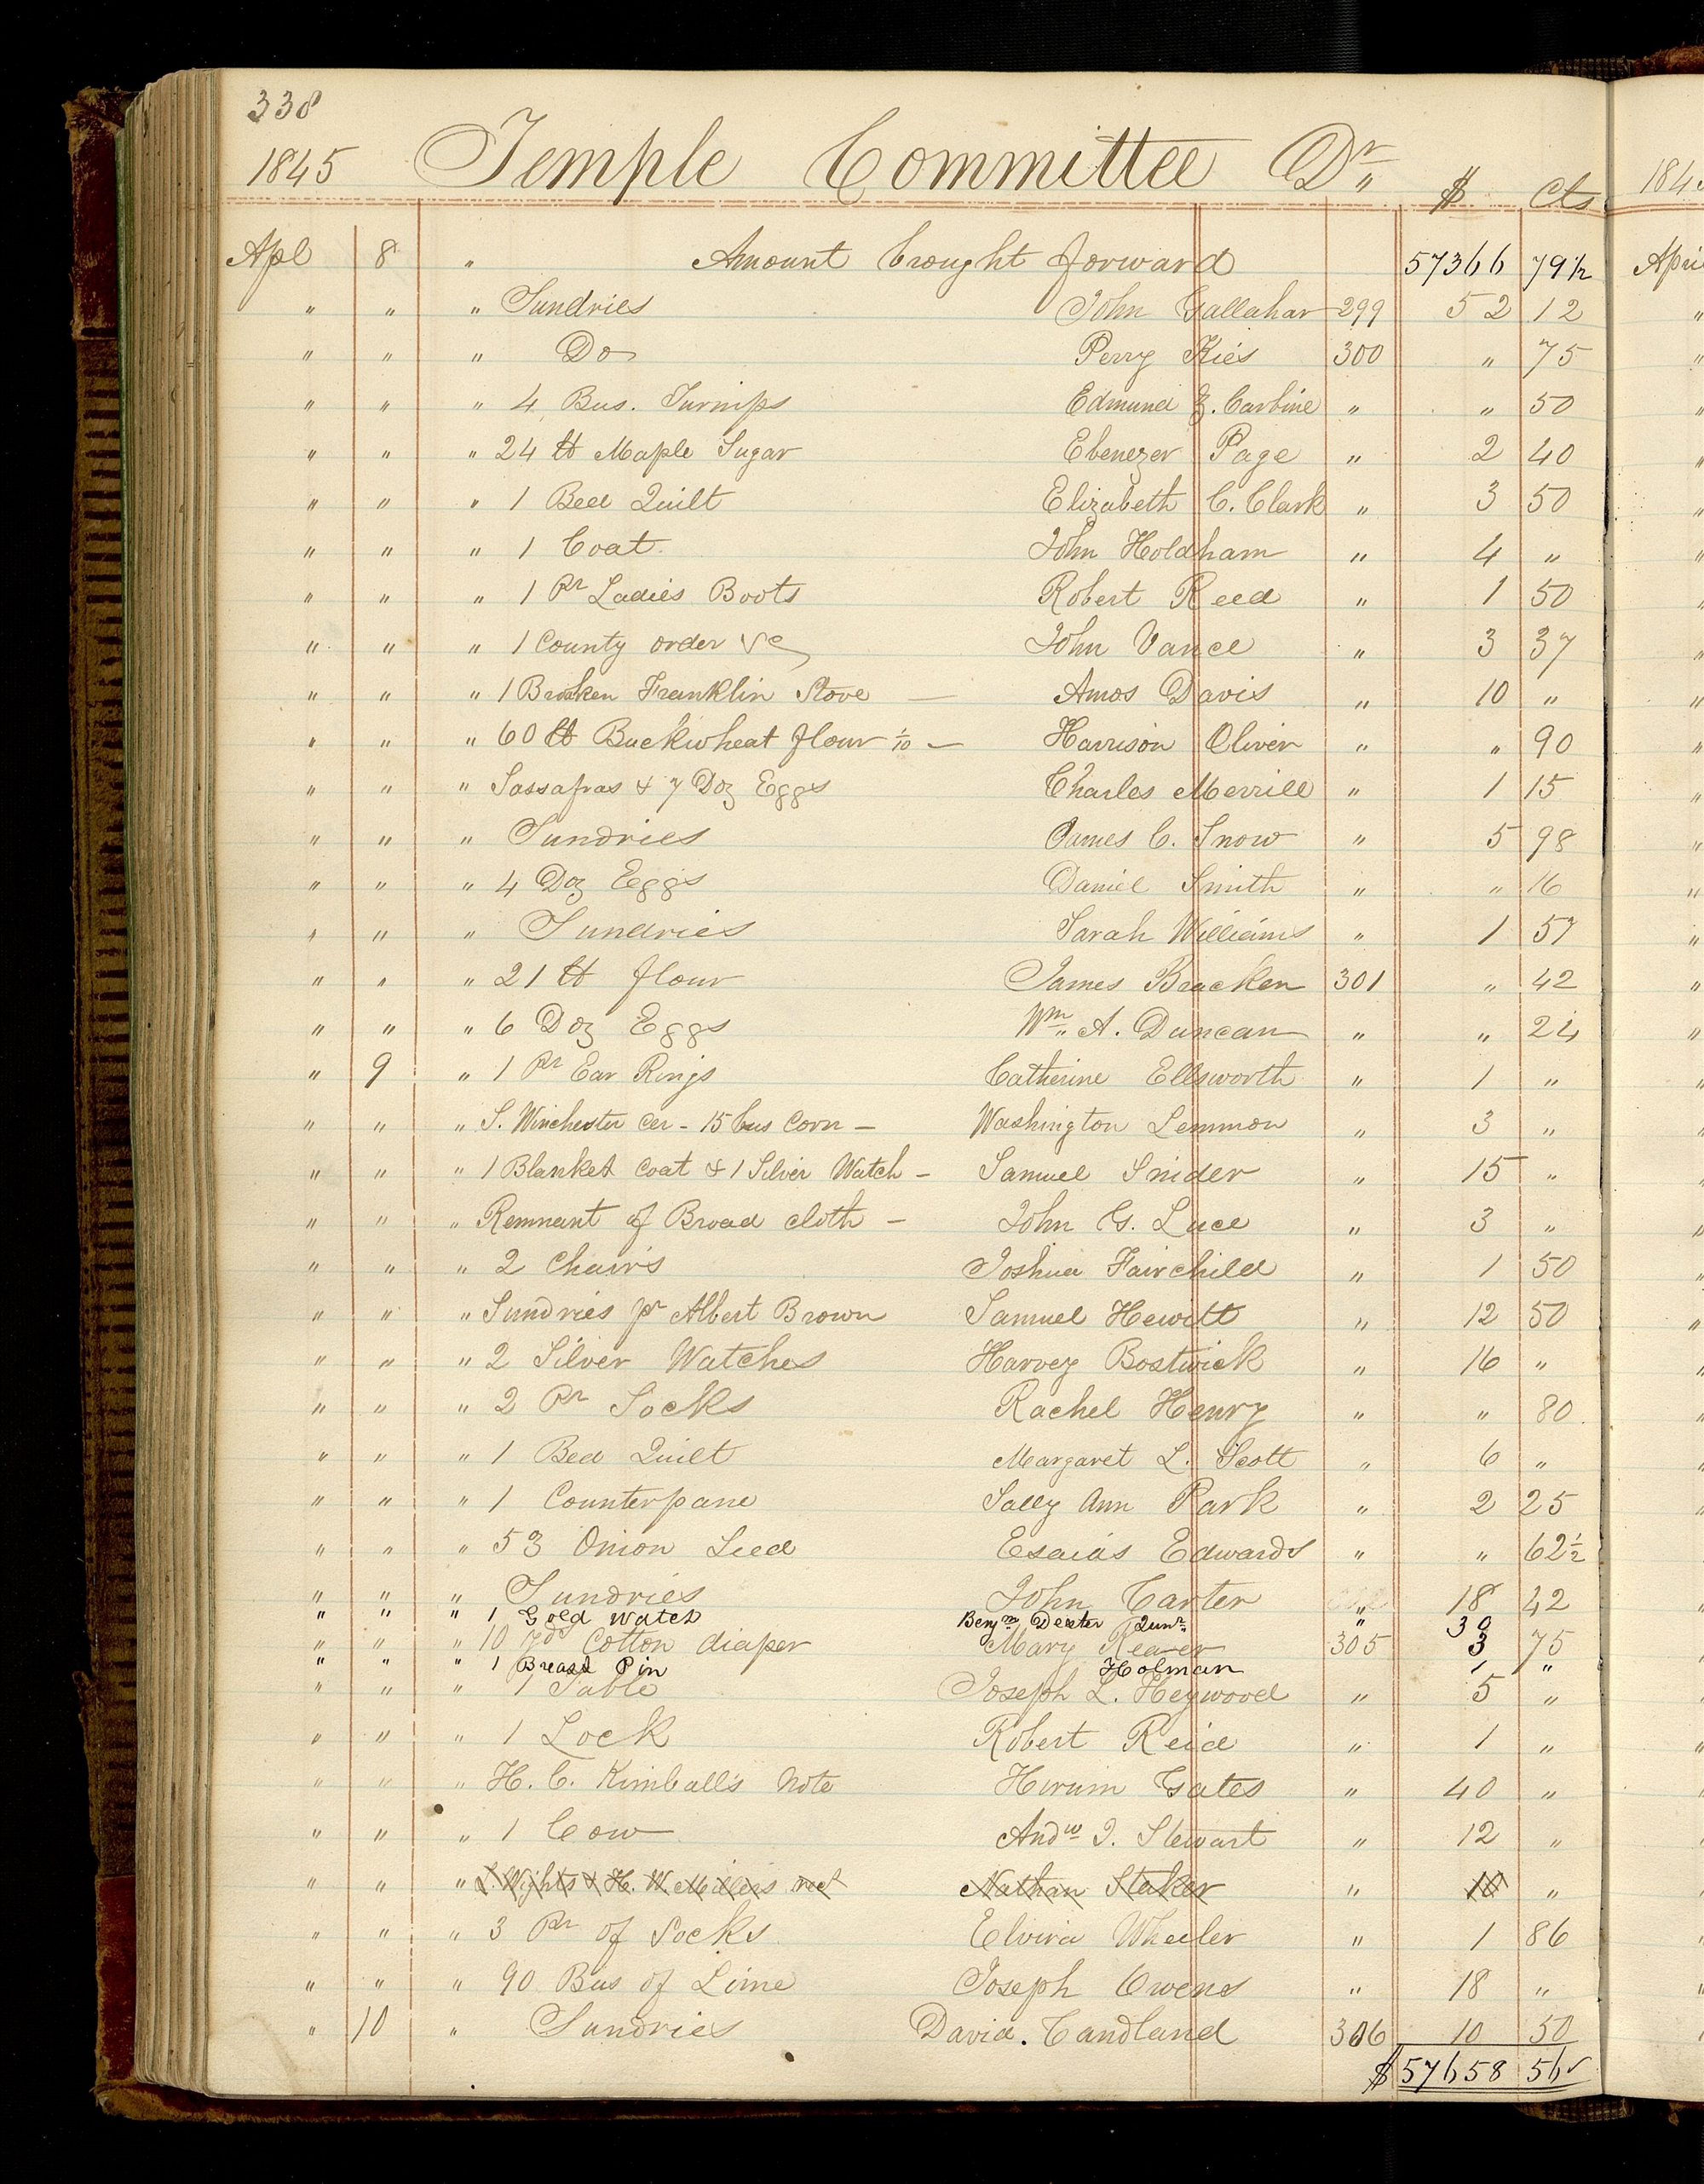 338
1845 Temple Committee Dr $ Cts 184
Apl 8 " Amount brought forward 57366 79½ Apri
" " " Sundries John Gallahar 299 52 12
" " " Do Perry Kies 300 " 75
" " " 4 Bus. Turnips Edmund Z. Carbine " " 50
" " " 24 lb Maple Sugar Ebenezer Page " 2 40
" " " 1 Bed Quilt Elizabeth C. Clark " 3 50
" " " 1 Coat. John Holdham " 4 "
" " " 1 Pr Ladies Boots Robert Reed " 1 50
" " " 1 County order &c John Vance " 3 37
" " " 1 Broken Franklin Stove — Amos Davis " 10 "
" " " 60 lb Buckwheat flour 1/10 — Harrison Oliver " " 90
" " " Sassafras & 7 Doz Eggs Charles Merrill " 1 15
" " " Sundries James C. Snow " 5 98
" " " 4 Doz Eggs Daniel Smith " " 16
" " " Sundries Sarah Williams " 1 57
" " " 21 lb flour James Bracken 301 " 42
" " " 6 Doz Eggs Wm A. Duncan " " 24
" 9 " 1 Pr Ear Rings Catherine Ellsworth " 1 "
" " " S. Winchester cer - 15 bus Corn — Washington Lemmon " 3 "
" " " 1 Blanket Coat & 1 Silver Watch — Samuel Snider " 15 "
" " " Remnant of Broad cloth — John G. Luce " 3 "
" " " 2 Chairs Joshua Fairchild " 1 50
" " " Sundries pr Albert Brown Samuel Hewitt " 12 50
" " " 2 Silver Watches Harvey Bostwick " 16 "
" " " 2 Pr Socks Rachel Henry " " 80
" " " 1 Bed Quilt Margaret L. Scott " 6 "
" " " 1 Counterpane Sally Ann Park " 2 25
" " " 53 Onion Seed Esaias Edwards " " 62½
" " " Sundries John Carter " 18 42
" " " 1 Gold Watch Benjn Dexter Junr " 30
" " " 10 yds Cotton diaper Mary Reaver 305 3 75
" " " 1 Breast Pin Holman 1 "
" " " 1 Table Joseph L. Heywood " 5 "
" " " 1 Lock Robert Reid " 1 "
" " " H. C. Kimball's Note Hirum Gates " 40 "
" " " 1 Cow Andw J. Stewart " 12 "
" " " L. Wights & H. W. Millers rect Nathan Staker " 10 "
" " " 3 Pr of Socks Elvira Wheeler " 1 86
" " " 90 Bus of Lime Joseph Owens " 18 "
" 10 " Sundries David. Candland 306 10 50
$ 57658 56